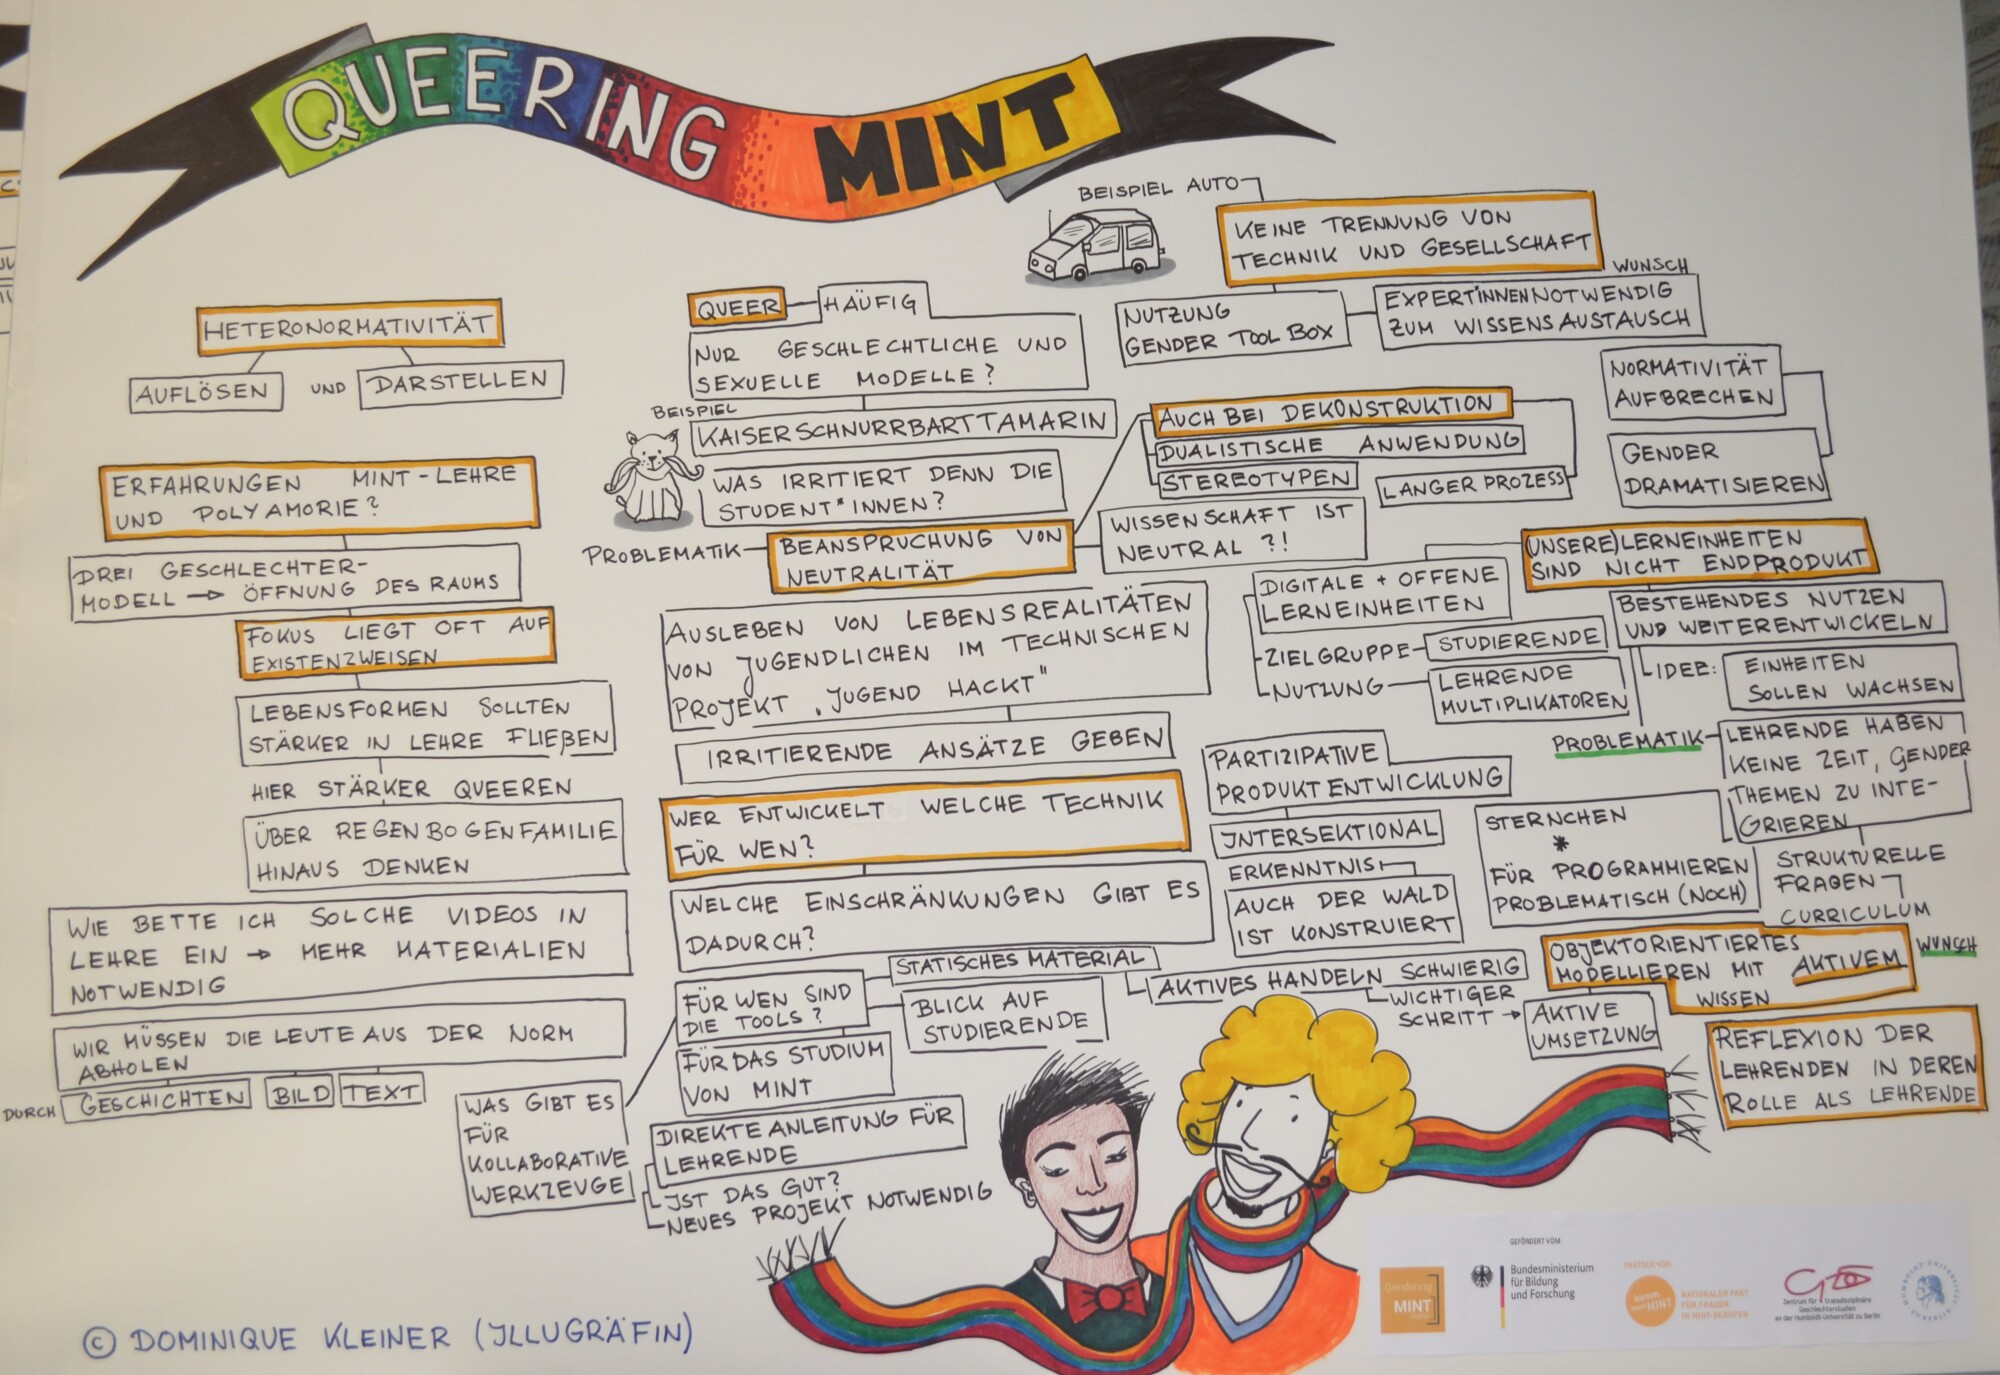 QUEERING MINT
HETERONORMATIVITÄT
AUFLÖSEN UND DARSTELLEN
ERFAHRUNGEN MINT-LEHRE
UND POLYAMORIE?
DREI GESCHLECHTER-
MODELL → ÖFFNUNG DES RAUMS
FOKUS LIEGT OFT AUF
EXISTENZWEISEN
LEBENSFORMEN SOLLTEN
STÄRKER IN LEHRE FLIEßEN
HIER STÄRKER QUEEREN
ÜBER REGENBOGENFAMILIE
HINAUS DENKEN
WIE BETTE ICH SOLCHE VIDEOS IN
LEHRE EIN → MEHR MATERIALIEN
NOTWENDIG
WIR MÜSSEN DIE LEUTE AUS DER NORM
ABHOLEN
DURCH GESCHICHTEN BILD TEXT
QUEER HÄUFIG
NUR GESCHLECHTLICHE UND
SEXUELLE MODELLE?
BEISPIEL
KAISERSCHNURRBARTTAMARIN
WAS IRRITIERT DENN DIE
STUDENT*INNEN?
PROBLEMATIK BEANSPRUCHUNG VON
NEUTRALITÄT
WISSENSCHAFT IST
NEUTRAL?!
AUCH BEI DEKONSTRUKTION
DUALISTISCHE ANWENDUNG
STEREOTYPEN
LANGER PROZESS
AUSLEBEN VON LEBENSREALITÄTEN
VON JUGENDLICHEN IM TECHNISCHEN
PROJEKT „JUGEND HACKT"
IRRITIERENDE ANSÄTZE GEBEN
WER ENTWICKELT WELCHE TECHNIK
FÜR WEN?
WELCHE EINSCHRÄNKUNGEN GIBT ES
DADURCH?
FÜR WEN SIND
DIE TOOLS?
STATISCHES MATERIAL
AKTIVES HANDELN SCHWIERIG
WICHTIGER
SCHRITT →
AKTIVE
UMSETZUNG
BLICK AUF
STUDIERENDE
FÜR DAS STUDIUM
VON MINT
WAS GIBT ES
FÜR
KOLLABORATIVE
WERKZEUGE
DIREKTE ANLEITUNG FÜR
LEHRENDE
IST DAS GUT?
NEUES PROJEKT NOTWENDIG
BEISPIEL AUTO
KEINE TRENNUNG VON
TECHNIK UND GESELLSCHAFT
NUTZUNG
GENDER TOOL BOX
WUNSCH
EXPERT*INNEN NOTWENDIG
ZUM WISSENSAUSTAUSCH
NORMATIVITÄT
AUFBRECHEN
GENDER
DRAMATISIEREN
(UNSERE) LERNEINHEITEN
SIND NICHT ENDPRODUKT
DIGITALE + OFFENE
LERNEINHEITEN
ZIELGRUPPE STUDIERENDE
NUTZUNG LEHRENDE
MULTIPLIKATOREN
BESTEHENDES NUTZEN
UND WEITERENTWICKELN
IDEE: EINHEITEN
SOLLEN WACHSEN
PROBLEMATIK LEHRENDE HABEN
KEINE ZEIT, GENDER
THEMEN ZU INTE-
GRIEREN
STRUKTURELLE
FRAGEN
CURRICULUM
PARTIZIPATIVE
PRODUKTENTWICKLUNG
INTERSEKTIONAL
ERKENNTNIS
AUCH DER WALD
IST KONSTRUIERT
STERNCHEN
*
FÜR PROGRAMMIEREN
PROBLEMATISCH (NOCH)
OBJEKTORIENTIERTES
MODELLIEREN MIT AKTIVEM
WISSEN
WUNSCH
REFLEXION DER
LEHRENDEN IN DEREN
ROLLE ALS LEHRENDE
© DOMINIQUE KLEINER (ILLUGRÄFIN)
Gendering
MINT
GEFÖRDERT VOM
Bundesministerium
für Bildung
und Forschung
PARTNER VON:
komm
mach MINT
NATIONALER PAKT
FÜR FRAUEN
IN MINT-BERUFEN
Zentrum für transdisziplinäre
Geschlechterstudien
an der Humboldt-Universität zu Berlin